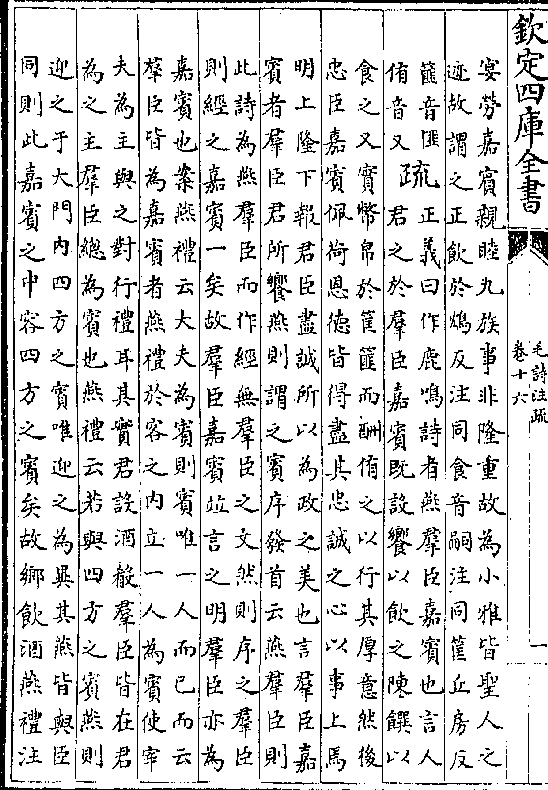 欽定四庫全書
毛詩注疏
卷十六
一
宴勞嘉賓親睦九族事非隆重故為小雅皆聖人之
迹故謂之正飲於鴆反注同食音嗣注同筐丘房反
篚音匪
侑音又疏正義曰作鹿鳴詩者燕羣臣嘉賓也言人
君之於羣臣嘉賓既設饗以飲之陳饌以
食之又實幣帛於筐篚而酬侑之以行其厚意然後
忠臣嘉賓佩荷恩德皆得盡其忠誠之心以事上焉
明上隆下報君臣盡誠所以為政之美也言羣臣嘉
賓者羣臣君所饗燕則謂之賓序發首云燕羣臣則
此詩為燕羣臣而作經無羣臣之文然則序之羣臣
則經之嘉賓一矣故羣臣嘉賓竝言之明羣臣亦為
嘉賓也案燕禮云大夫為賓則賓唯一人而已而云
羣臣皆為嘉賓者燕禮於客之内立一人為賓使宰
夫為主與之對行禮耳其實君設酒殽羣臣皆在君
為之主羣臣總為賓也燕禮云若與四方之賓燕則
迎之于大門内四方之賓唯迎之為異其燕皆與臣
同則此嘉賓之中容四方之賓矣故鄉飲酒燕禮注